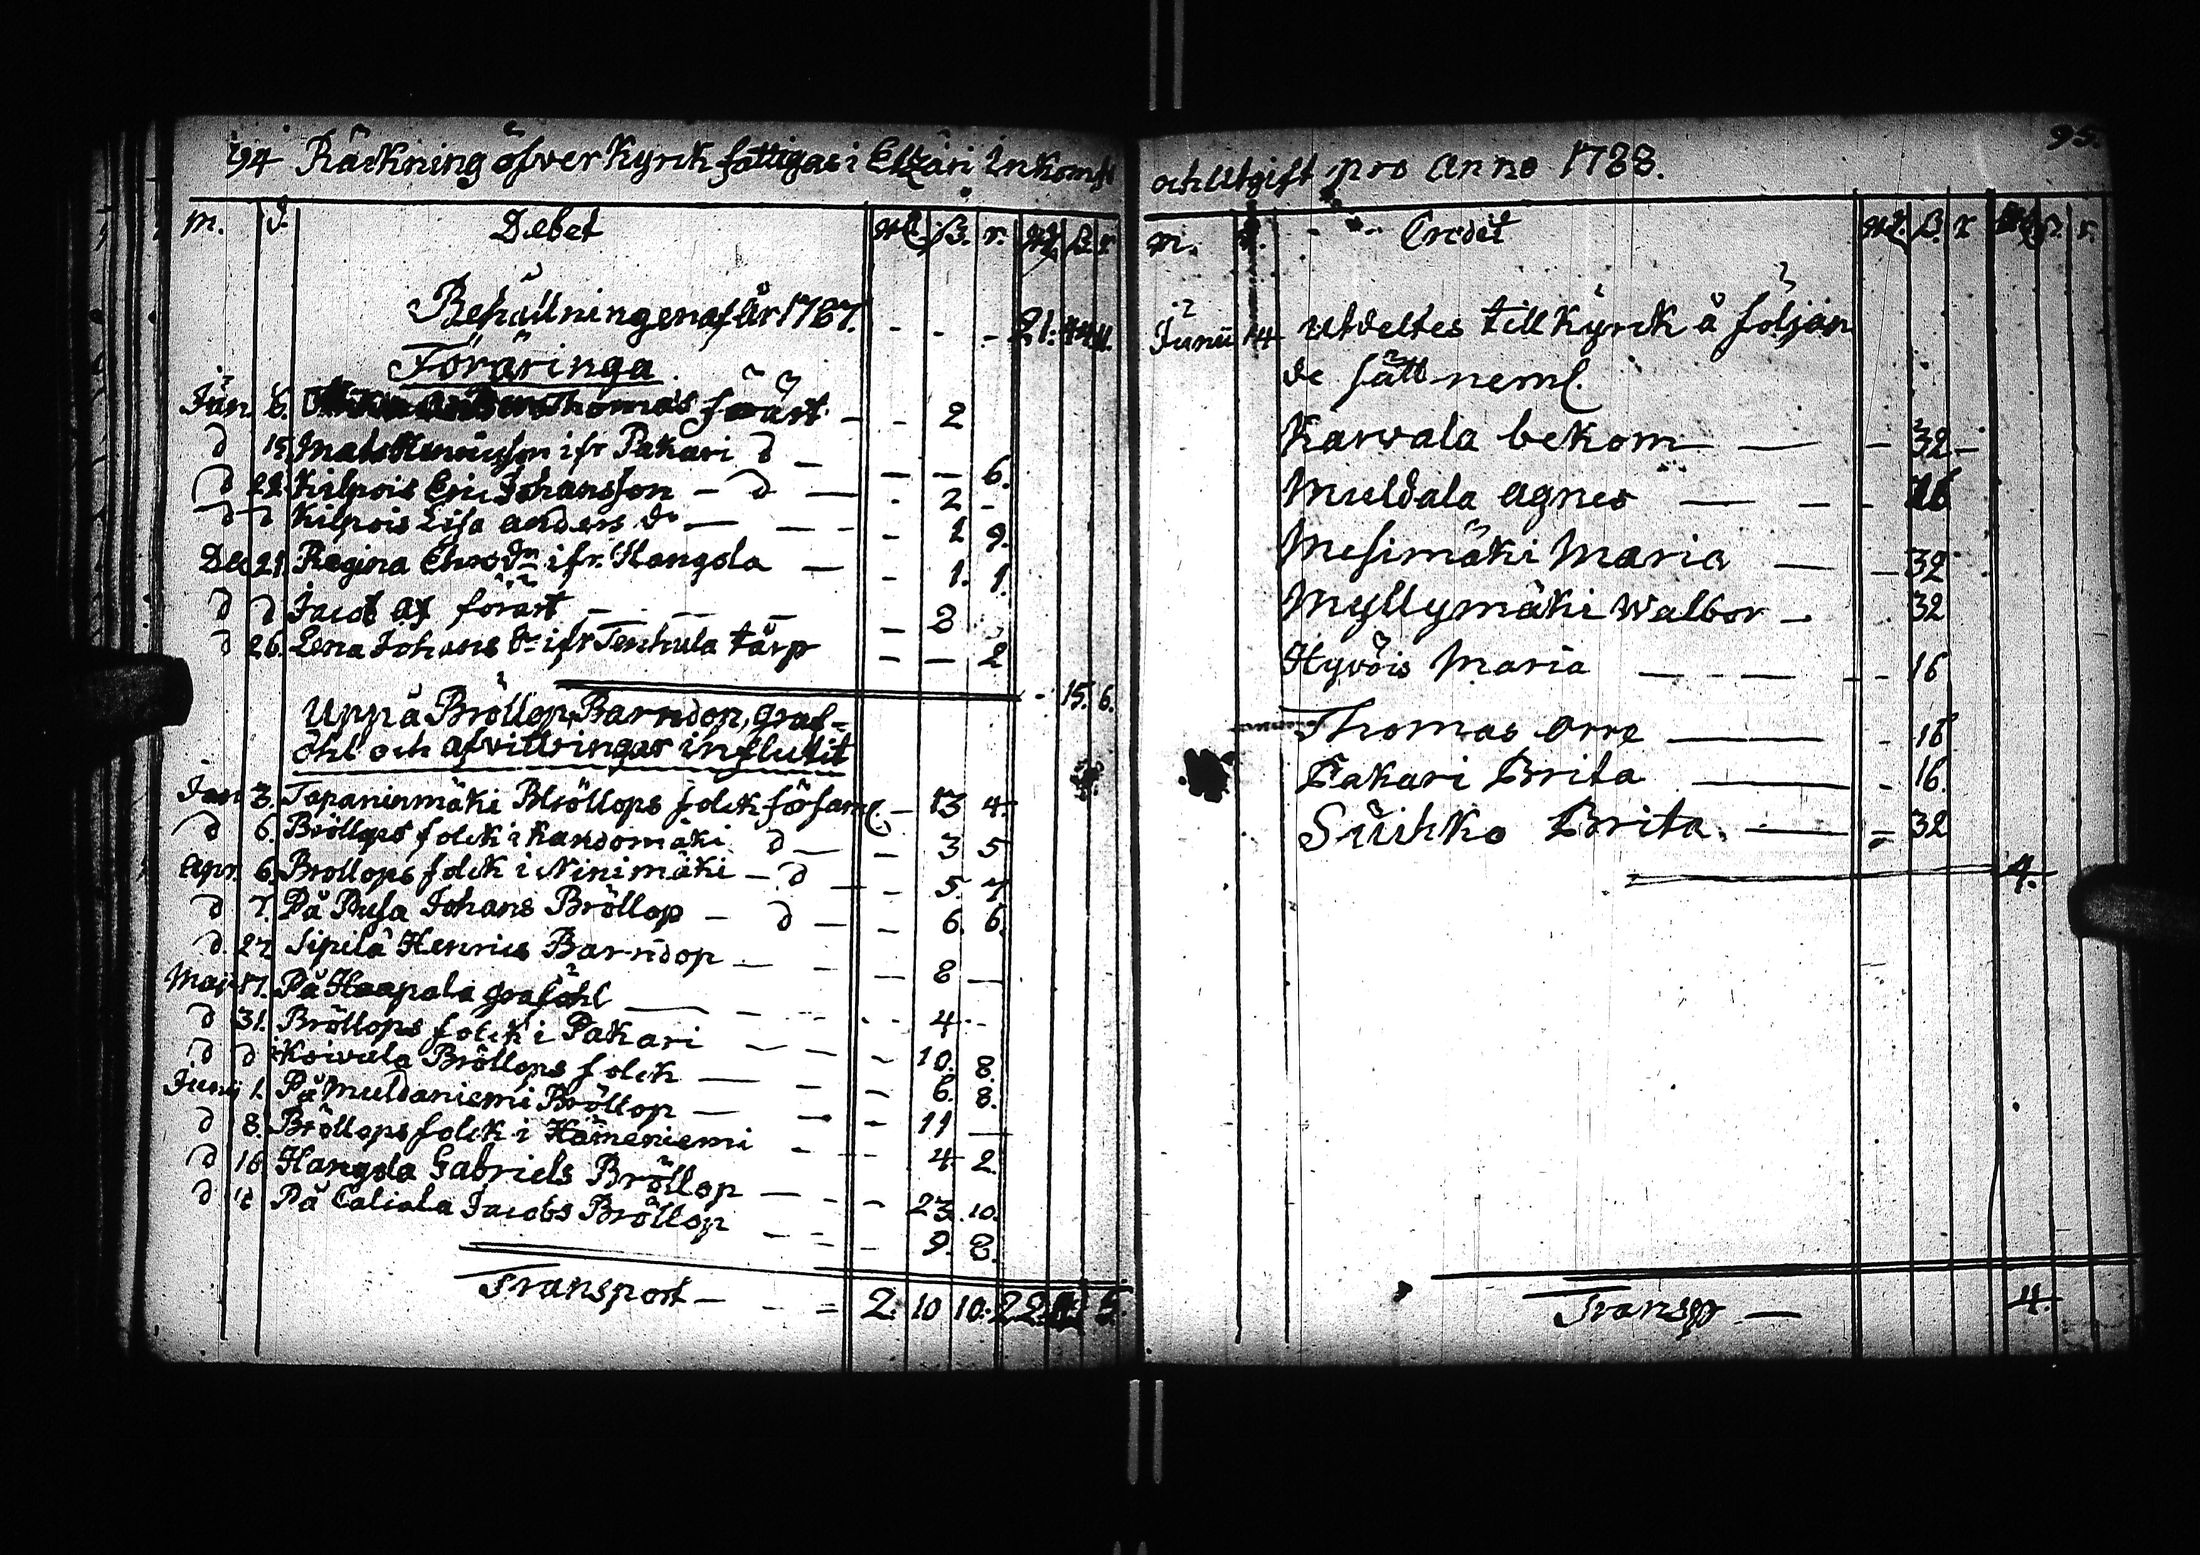 94 Räckning öfver Kyrck fattigas i Etzäri Inkomst
m. d. Debet Rd. ß. r. Rd. ß. r.
Behållningen af År 1787. - - - 21. 44. 11.
Föräringa
Jan 6. Thomas förärt - - 2
d 15. Mats Henricsson ifr Pakari d - - - 6.
d 22. Kilpois Eric Johansson - d - - 2 -
d d Kilpois Lisa anders dr - - - - 1 9.
Dec 21. Regina Chr dr ifr. Hangola - - 1. 1.
d d Jacob förärt - - - - 8
d 26. Lena Johans dr ifr Tenhula tårp - - 2
- 15. 6.
Uppå Bröllop, Barndop, graf-
öhl och afvittringar influtit
Jan 3. Tapaninmäki Bröllops folck församl. - 13 4.
d 6. Bröllops folck i Kandomäki d - - 3 5
Apr. 6. Bröllops folck i Ninimäki - d - - 5. 7
d 7. På Pusa Johans Bröllop - d - - 6. 6.
d. 27 Sipilä Henrics Barndop - - - 8 -
Maji 17. På Haapala graföhl - - - - 4. -
d 31. Bröllops folck i Pakari - - - 10. 8.
d d Koivula Bröllops folck - - - 6. 8.
Junij 1. På Muldaniemi Bröllop - - - 11 -
d 8. Bröllops folck i Hämeniemi - - - 4. 2.
d 16 Hangola Gabriels Bröllop - - - 23. 10.
d På Caliala Jacobs Bröllop - - - 9. 8.
Transport - - - 2. 10 10. 22. 5.
och Utgift pro Anno 1788. 95.
m. d. Credit Rd. ß. r Rd. ß. r.
Junii 14 utdeltes till Kyrck å följan
de sätt neml.
Karvala bekom - - - 32 -
Muldala Agnes - - - 16
Mesimäki Maria - - 32
Myllymäki Walbor - . 32
Hyvöis Maria - - - - - 16
Thomas Orre - - 16
Pakari Brita - - 16.
Suihko Brita. - - 32
4.
Transp - 4.